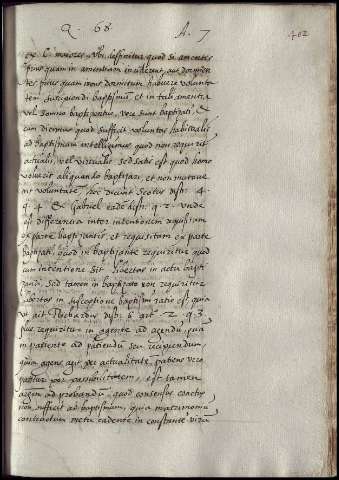 Q. 68 A. 7 402
ex C. maiores. Ubi diffinitur, quod si amentes
prius quam in amentiam inciderent, aut dormien
tes prius quam irent dormitum, habuere volunta
tem suscipiendi baptismum, et in tali amentia
vel somno baptizentur, vere sunt baptizati, et
cum dicimus quod sufficit voluntas habitualis
ad baptismum intelligimus quod non requirit
actualis, vel virtualis sed satis est quod homo
voluerit aliquando baptizari, et non mutave
rit voluntatem, hoc dicunt Scotus dist. 4.
q. 4. et Gabriel eadem dist. q. 2. unde
est differentia inter intentionem requisitam
ex parte baptizantis, et requisitam ex parte
baptizati, quod in baptizante requiritur quod
cum intentione sit libertas in actu bapti
zandi, sed tamen in baptizato non requiritur
libertas in susceptione baptismi ratio est quia
ut ait Richardus dist. 6. art. 2. q. 3.
plus requiritur in agente ad agendum, quam
in patiente ad patiendum seu recipiendum,
quia agens agit per actualitatem, patiens vero
patitur per passibilitatem, est tamen
ad probandum, quod consensus coactus
non sufficit ad baptismum, quia matrimonium
contractum metu cadente in constantem virum